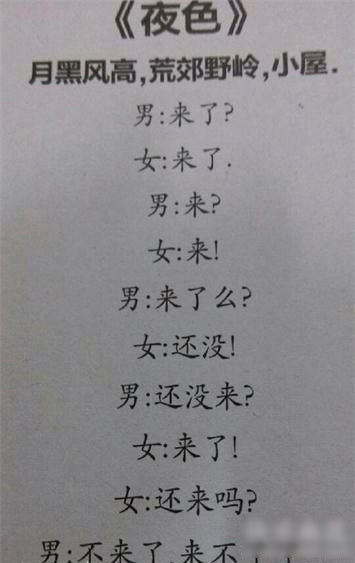 《夜色》
月黑风高,荒郊野岭,小屋.
男:来了?
女:来了.
男:来?
女:来!
男:来了么?
女:还没!
男:还没来?
女:来了!
女:还来吗?
男:不来了,来不